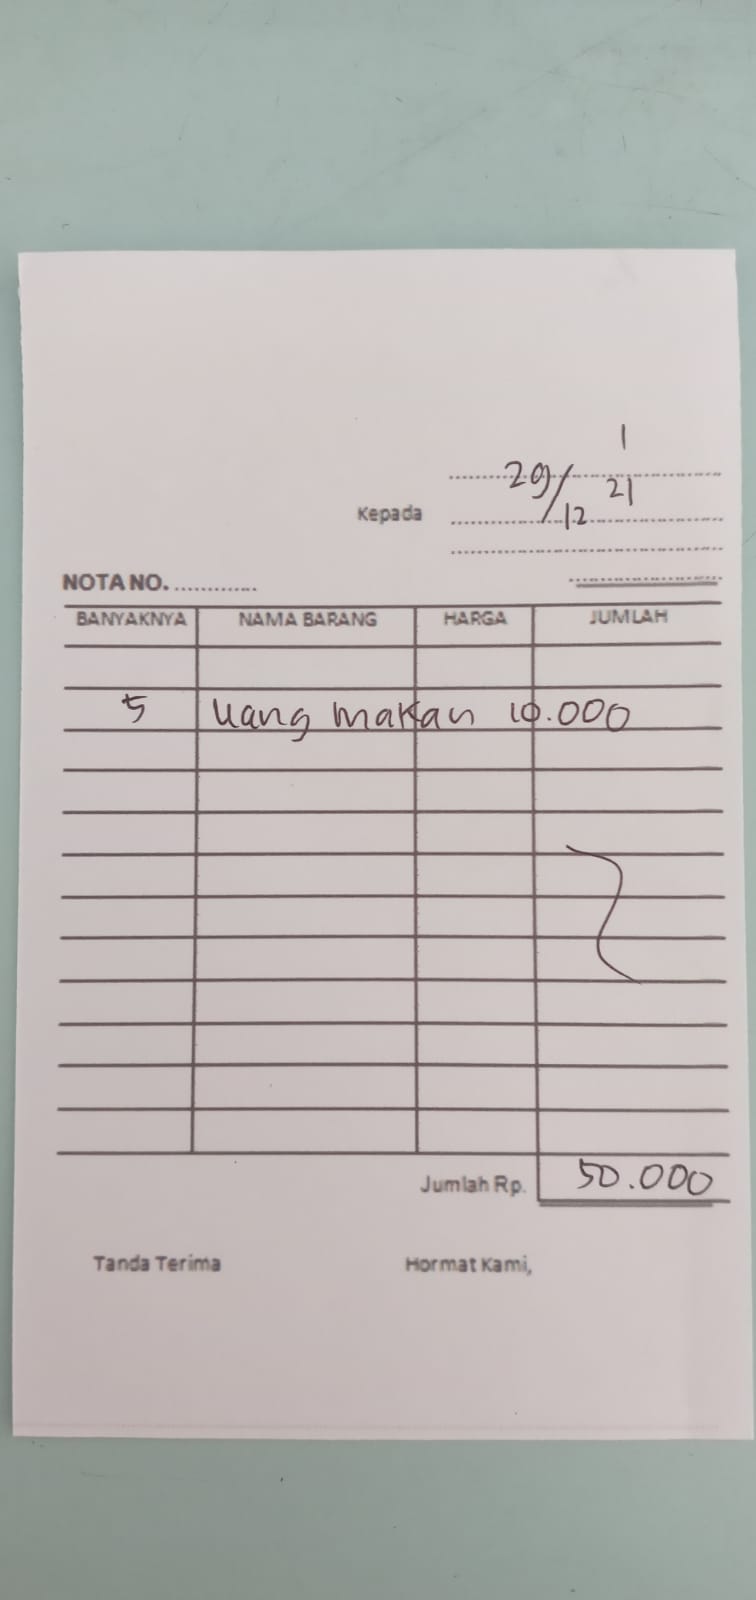 29/12 21
Kepada
NOTA NO. .............
BANYAKNYA NAMA BARANG HARGA JUMLAH
5 Uang makan 10.000
Jumlah Rp. 50.000
Tanda Terima Hormat Kami,